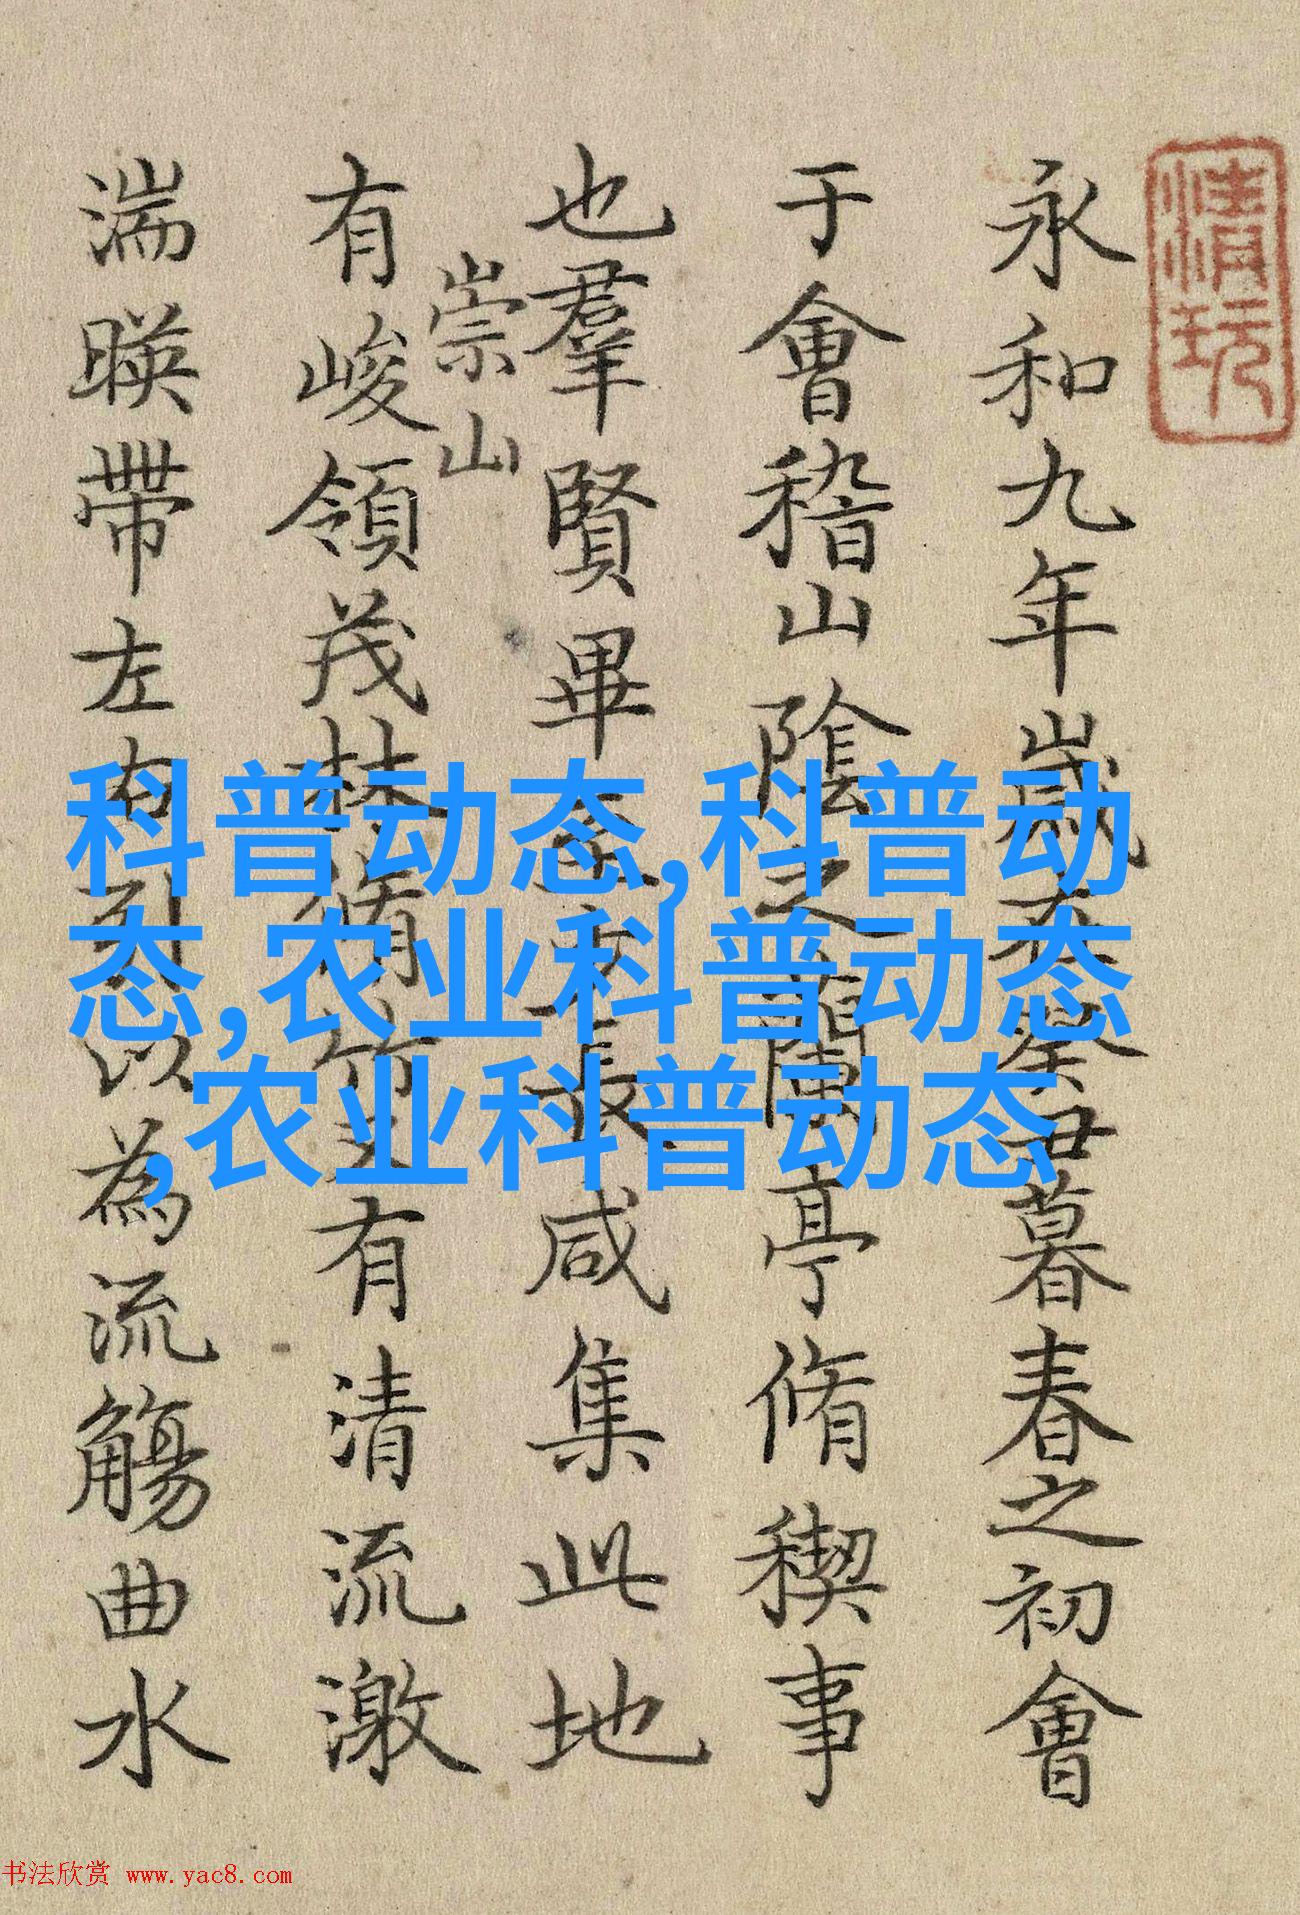 清玩
永和九年歲在癸丑暮春之初會
于會稽山陰之蘭亭脩稧事
也羣賢畢至少長咸集此地
崇山
有峻領茂林脩竹又有清流激
湍暎帶左右引以為流觴曲水
科普动态,科普动
态,农业科普动态
,农业科普动态
书法欣赏 www.yac8.com